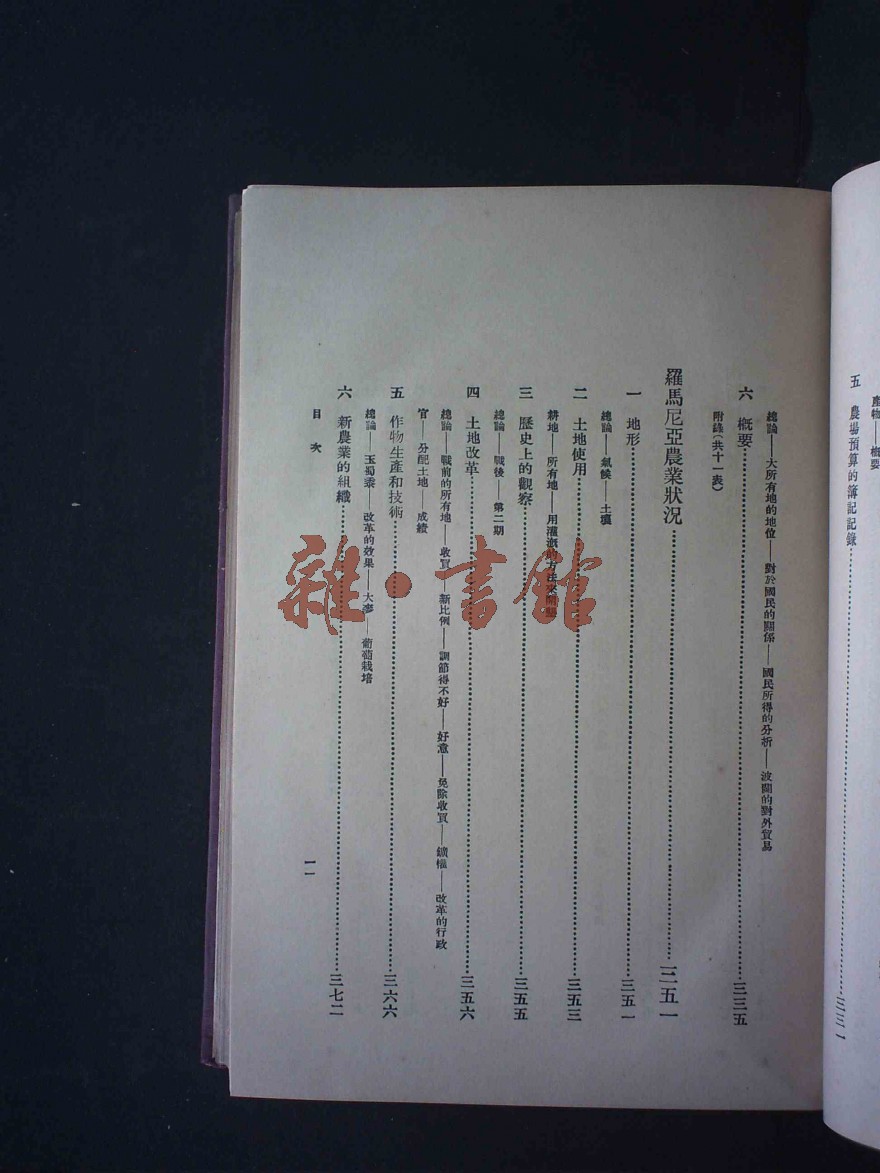 產物——概要
五 農場預算的簿記記錄……三三一
總論——大所有地的地位——對於國民的關係——國民所得的分析——波蘭的對外貿易
六 概要……三三五
附錄(共十一表)
羅馬尼亞農業狀況……三五一
一 地形……三五一
總論——氣候——土壤
二 土地使用……三五三
耕地——所有地——用灌漑的方法來開墾
三 歷史上的觀察……三五五
總論——戰後——第二期
四 土地改革……三五六
總論——戰前的所有地——收買——新比例——調節得不好——好意——免除收買——鑛權——改革的行政
官——分配土地——成績
五 作物生產和技術……三六六
總論——玉蜀黍——改革的效果——大麥——葡萄栽培
六 新農業的組織……三七二
目次
一一
雜·書館